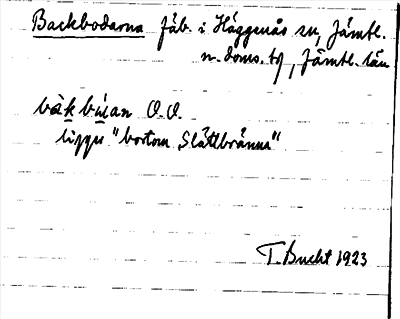 Backbodarna fäb. i Häggenås sn, Jämtl.
n. doms. tg, Jämtl. län
bàk búan O.O.
ligger "bortom Slåttbränna"
T. Bucht 1923